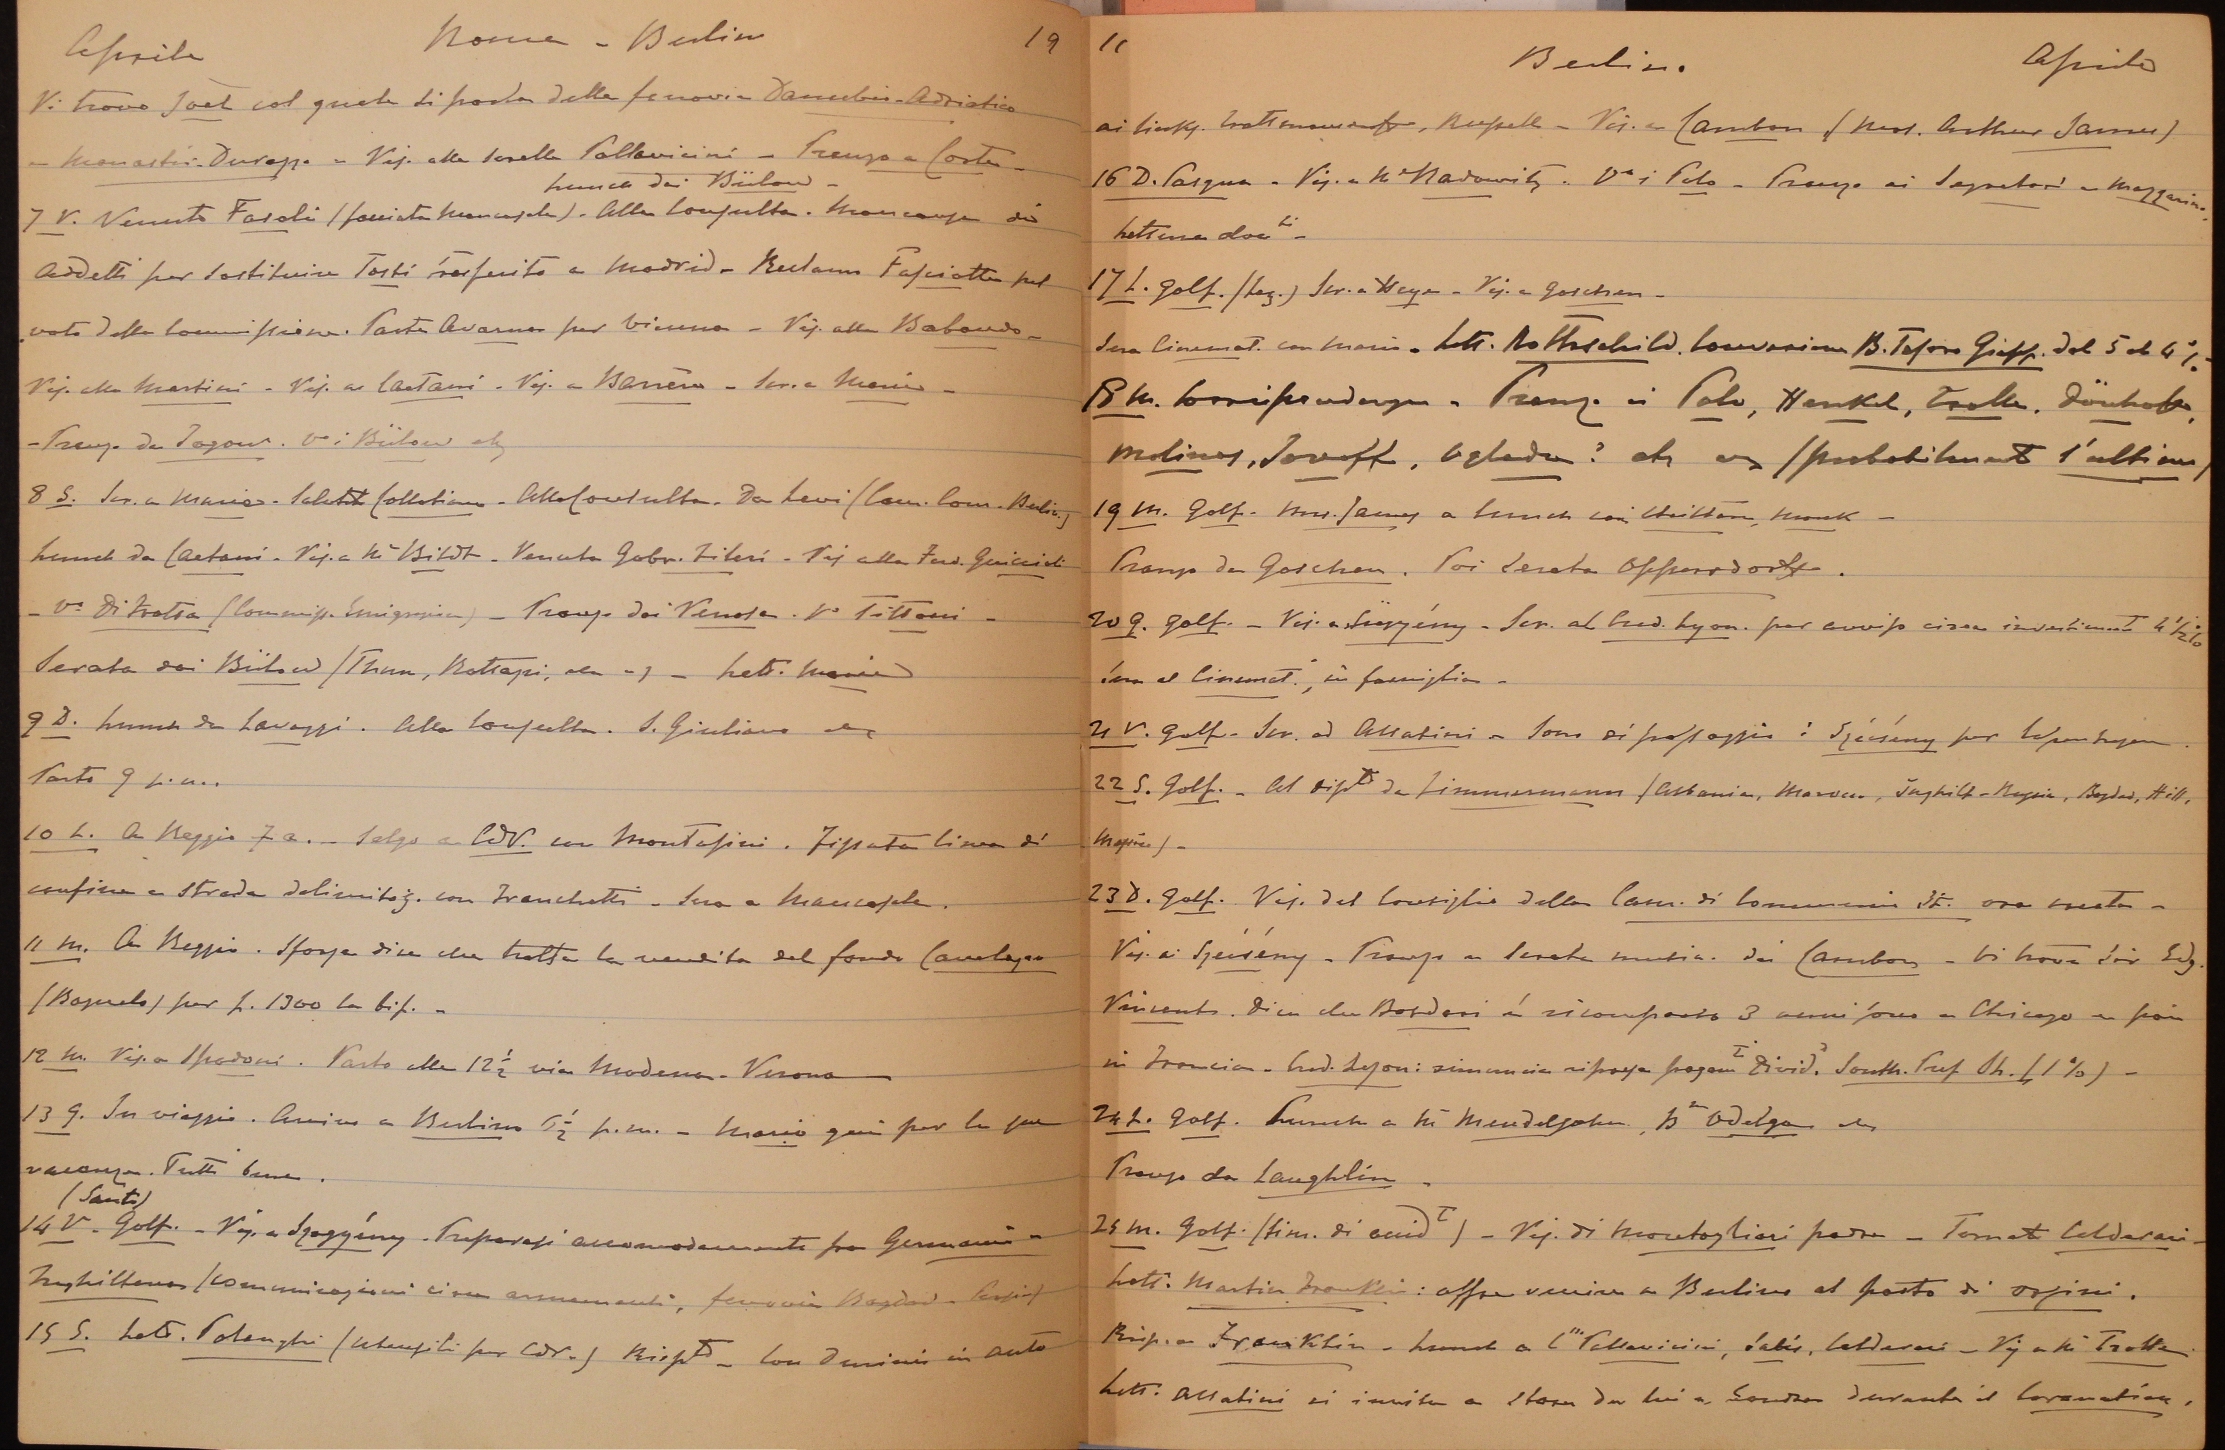 Aprile Roma - Berlin 19
Vi trovo Joël col quale si parla della ferrovia Danubio-Adriatico
e Monastir-Durazzo - Vis. alla sorella Pallavicini - Pranzo a Corte -
lunch dai Bülow -
7 V. Venuto Fasoli (facciata Mancasale). Alla Consulta. Mancanza di
Addetti per sostituire Tosti trasferito a Madrid - Reclamo Fasciotti pel
voto della Commissione. Parte Avarna per Vienna - Vis. alla
Vis. alla Martini - Vis. ai Caetani - Vis. a Barrère - Scr. a Mario -
- Pranzo da Jagow. Va i Bülow etc
8 S. Scr. a Mario - Alla Consulta. Da Levi (Cam. Com. Berlin.)
lunch da Caetani - Vis. a Me Bildt - Venuta Gabr. - Vis alla
- Va Di Fratta (Commiss. Emigrazione) - Pranzo dai Venosa. Va Tittoni -
Serata dai Bülow (Thun, etc) - Lett. Mario
9 D. Lunch da Lavaggi. Alla Consulta. S. Giuliano etc
Parto 9 p.m.
10 L. A Reggio 7 a. - Salgo a CdV. con Montasini. Fissata linea di
confine e strada delimitaz. con Franchetti - Sera a Mancasale.
11 M. A Reggio. Sforza dice che tratta la vendita del fondo
(Bagnolo) per L. 1300 la bif. -
12 M. Vis. a Spadoni. Parto alle 12½ via Modena - Verona
13 G. In viaggio. Arrivo a Berlino p.m. - Mario qui per le sue
vacanze. Tutti bene.
(Santo)
14 V - Golf. - Vis. a Szögyény. Preparasi accomodamento fra Germania e
Inghilterra (comunicazioni circa armamenti, ferrovia Bagdad - Persia)
15 S. Lett. Polenghi (utensili per CdV.) Rispto - Con Durini in auto
11 Berlin. Aprile
ai Vis. a Cambon (Mrs. Arthur James)
16 D. Pasqua - Vis. a Me Radowitz. Va i Polo - Pranzo ai Segretari e Mazzarino.
17 L. Golf. (Leg.) Scr. a Haya - Vis. a Goschen -
Sera Cinemat. con Mario - Lett. Rothschild. Conversione B. Tesoro Giapp. dal 5 al 4%.
18 M. Corrispondenza - Pranzo ai Polo, Henkel, Trotta, Dönhoff,
Molinos, ? etc etc (probabilmente l'ultimo)
19 M. Golf. Mrs. James a lunch con
Pranzo da Goschen. Poi serata Oppersdorff.
20 G. Golf. - Vis. a Szögyény - Scr. al Cred. Lyon. per avviso circa investimento 4½%
Sera al Cinemat., in famiglia -
21 V. Golf - Scr. ad Allatini - Sono di passaggio i Széczény per Copenhagen.
22 S. Golf. - Al dipto da Zimmermann (Albania, Marocco, Inghilt - Russia, Bagdad,
Messico) -
23 D. Golf. Vis. del Consiglio della Cam. di Commercio It. ora creata -
Vis. ai Széczény - Pranzo e serata music. dai Cambon - Vi trovo Sir Edg.
Vincent. Dice che Bosdari è ricomparso 3 anni sono a Chicago e poi
in Francia - Cred. Lyon: annuncia ripresa pagamti Divid. South. Pref Sh. (1%) -
24 L. Golf. Lunch a Me Mendelssohn, Bne Odelga etc
Pranzo da Laughlin -
25 M. Golf. - Vis. di Montagliari padre - Tornati Calderari -
Lett. Martin Franklin: offre venire a Berlino al posto di Orsini.
Risp. a Franklin - Lunch a Cssa Pallavicini, Salis, Calderari - Vis a Me Trotta
Lett. Allatini ci invita a stare da lui a Londra durante il Coronation.